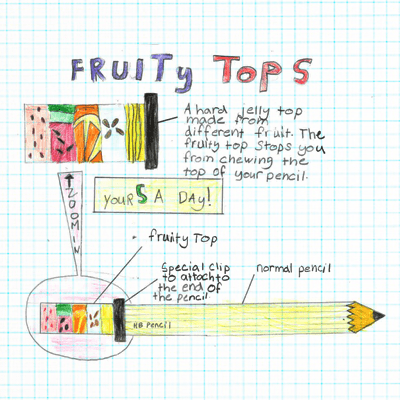 FRUITy TOPS
A hard Jelly top
made from
different fruit. The
fruity top Stops you
from chewing the
top of your pencil.
your 5 A DAy!
ZOOM IN
fruity Top
Special clip
to attach to
the end of
the pencil
normal pencil
HB Pencil